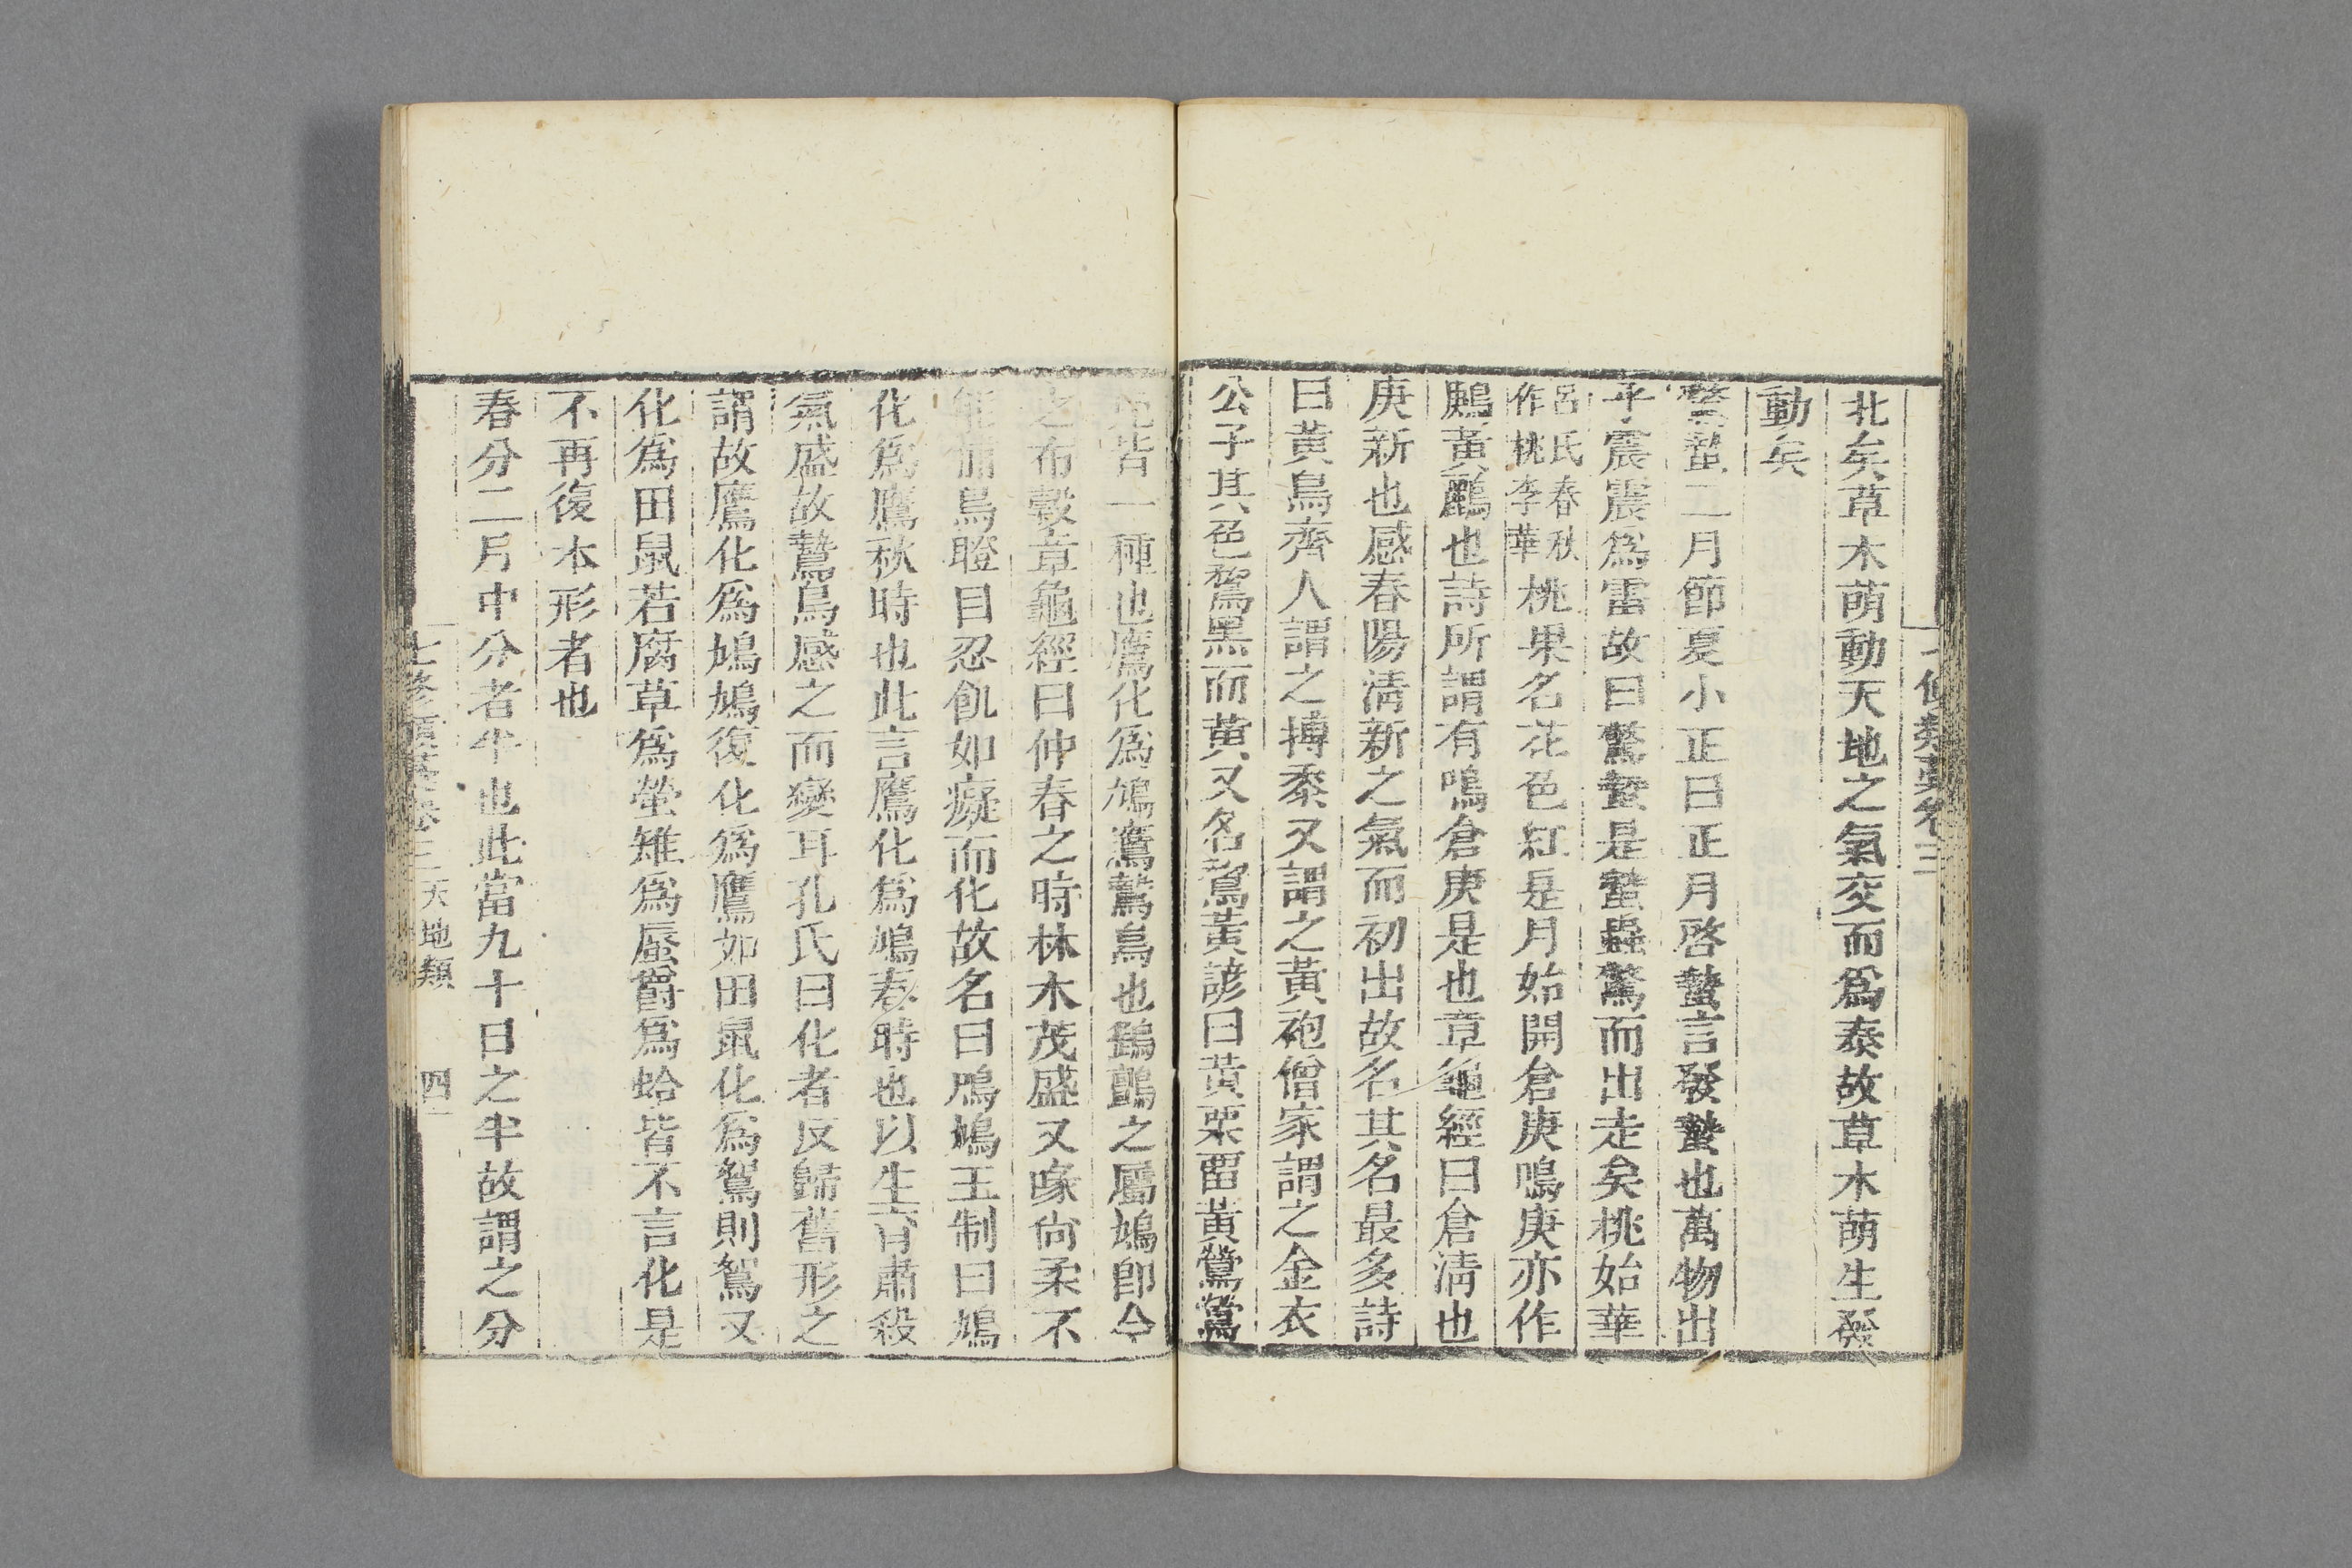 七修類藁卷三
北矣草木萌動天地之氣交而爲泰故草木萌生發
動矣
驚蟄二月節夏小正曰正月啓蟄言發蟄也萬物出
乎震震爲雷故曰驚蟄是蟄蟲驚而出走矣桃始華
呂氏春秋
作桃李華
桃果名花色紅是月始開倉庚鳴庚亦作
鶊黃鸝也詩所謂有鳴倉庚是也章龜經曰倉淸也
庚新也感春陽淸新之氣而初出故名其名最多詩
曰黃鳥齊人謂之摶黍又謂之黃袍僧家謂之金衣
公子其色鵹黑而黃又名鵹黃諺曰黃栗畱黃鶯鶯
皆一種也鷹化爲鳩鷹鷙鳥也鷂鸇之屬鳩卽今
之布穀章龜經曰仲春之時林木茂盛又喙尙柔不
能捕鳥瞪目忍飢如癡而化故名曰鳲鳩王制曰鳩
化爲鷹秋時也此言鷹化爲鳩春時也以生育肅殺
氣盛故鷙鳥感之而變耳孔氏曰化者反歸舊形之
謂故鷹化爲鳩鳩復化爲鷹如田鼠化爲鴽則鴽又
化爲田鼠若腐草爲螢雉爲蜃爵爲蛤皆不言化是
不再復本形者也
春分二月中分者半也此當九十日之半故謂之分
七修類藁卷三 天地類 四